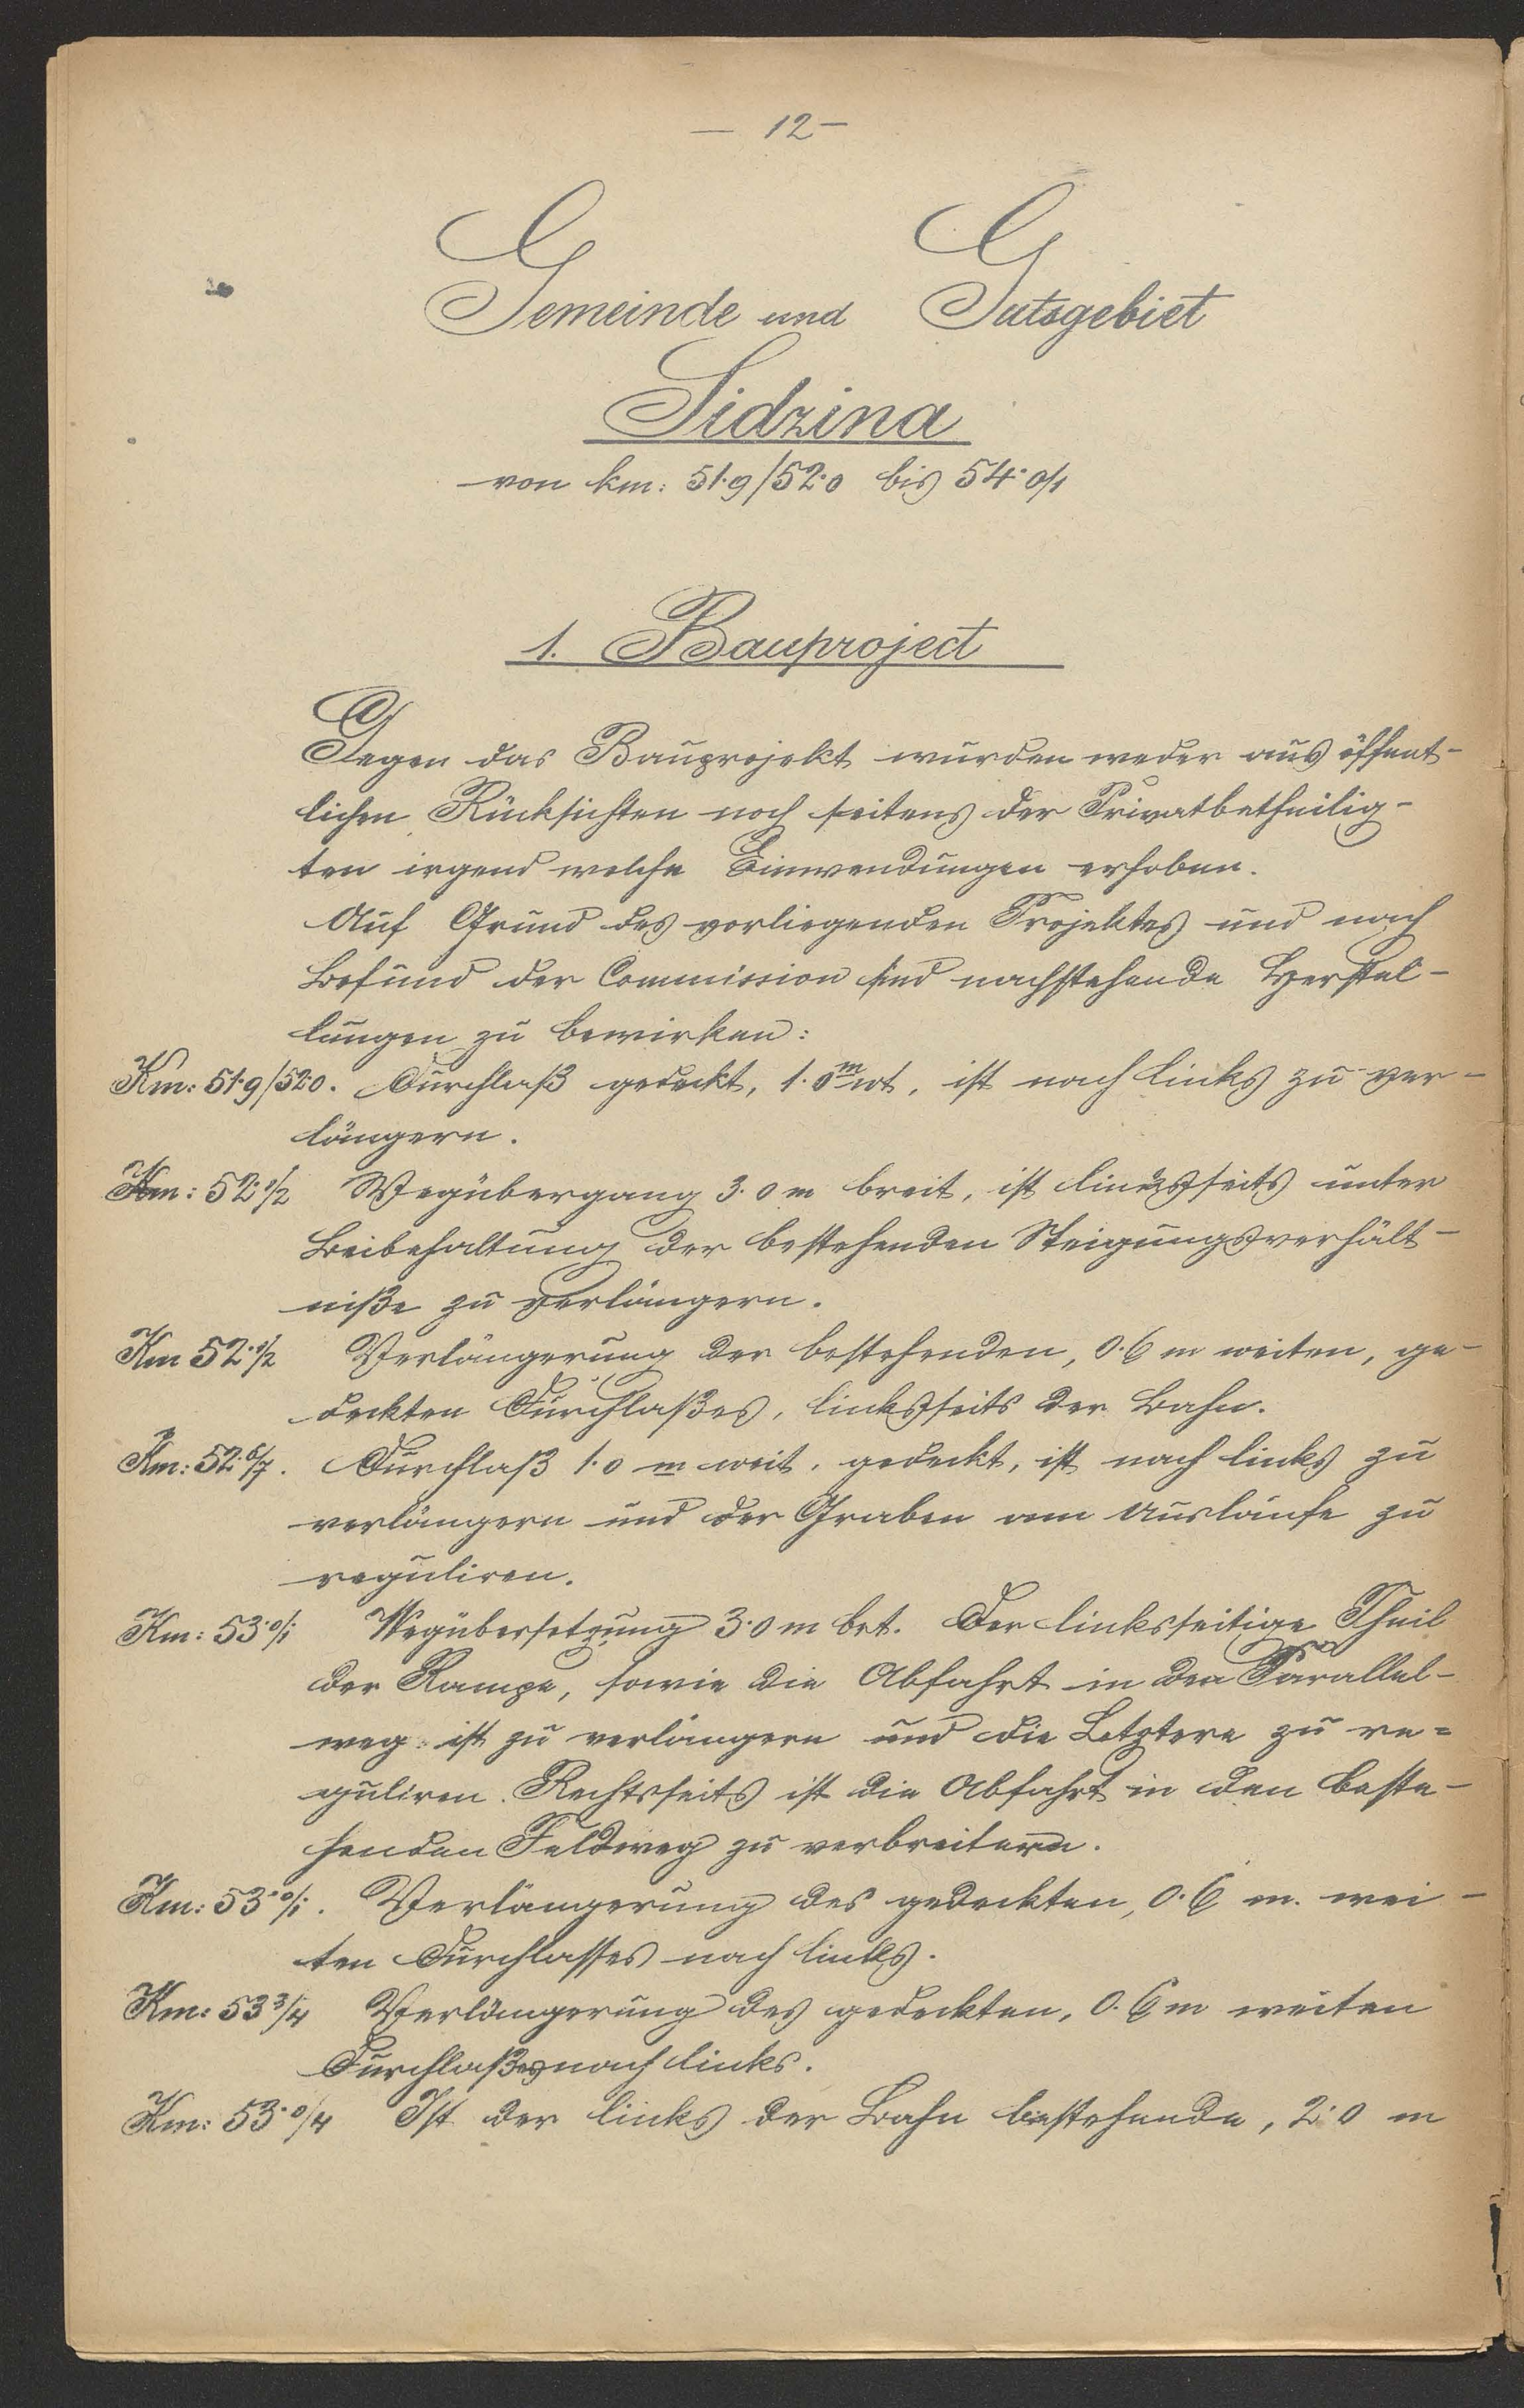 — 12 —
Gemeinde und Gutsgebiet
Sidzina
von km: 51·9/52·0 bis 54·0/1
1. Bauproject
Gegen das Bauprojekt wurden weder aus öffent-
lichen Rücksichten noch seitens der Privatbetheilig-
ten irgend welche Einwendungen erhoben.
Auf Grund des vorliegenden Projektes und nach
Befund der Commission sind nachstehende Herstel-
lungen zu bewirken:
Km: 51·9/52·0. Durchlaß gedeckt, 1·0 m wt, ist nach links zu ver-
längern.
Km: 52·1/2 Wegübergang 3·0 m breit, ist linksseits unter
Beibehaltung der bestehenden Steigungsverhält-
niße zu verlängern.
Km 52·1/2 Verlängerung der bestehenden, 0·6 m weiten, ge-
deckten Durchlaßes, linksseits der Bahn.
Km: 52·6/7. Durchlaß 1·0 m weit, gedeckt, ist nach links zu
verlängern und der Graben am Auslaufe zu
reguliren.
Km: 53·0/1 Wegübersetzung 3·0 m brt. Der linksseitige Theil
der Rampe, sowie die Abfahrt in den Parallel-
weg ist zu verlängern und die Letztere zu re=
guliren. Rechtsseits ist die Abfahrt in den beste-
henden Feldweg zu verbreitern.
Km: 53·0/1. Verlängerung des gedeckten, 0·6 m. wei-
ten Durchlasses nach links.
Km: 53 3/4 Verlängerung des gedeckten, 0·6 m weiten
Durchlaßes nach links.
Km: 53·0/4 Ist der links der Bahn bestehende, 2·0 m